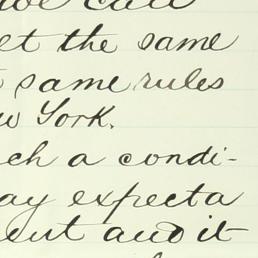 we call
et the same
same rules
w York.
ch a condi-
ay expect a
ent and it